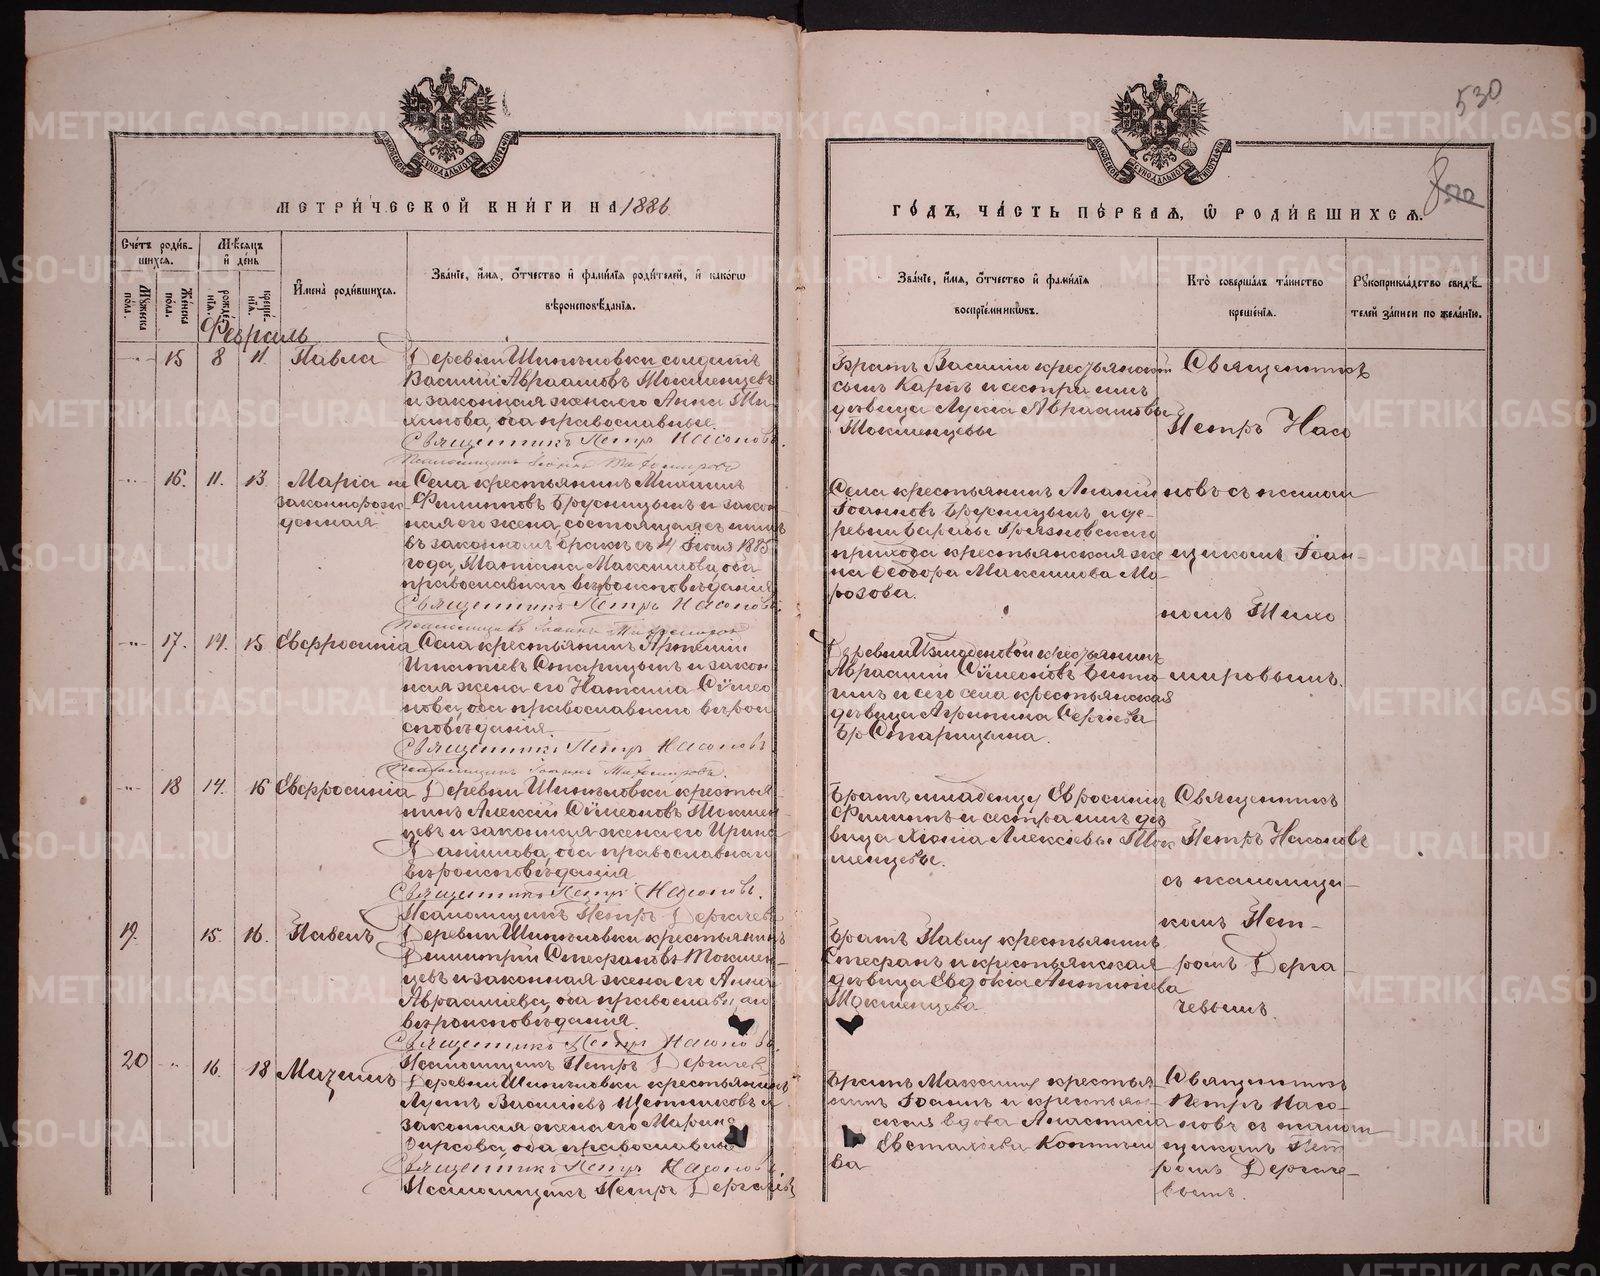 530
МЕТРИ́ЧЕСКОЙ КНИ́ГИ НА 1886
ГО́ДЪ, ЧА́СТЬ ПЕ́РВАЯ, Ѡ РОДИ́ВШИХСЯ.
Счетъ роди́в-
шихся.
Мѣ́сяцъ
и де́нь
Му́жеска по́ла.
Же́нска по́ла.
рожде́нія.
креще́нія.
Имена̀ роди́вшихся.
Зва́ніе, и́мя, о́тчество и фами́лія роди́телей, и како́гѡ
вѣроисповѣ́данія.
Зва́ніе, и́мя, о́тчество и фами́лія
воспріе́мникѡвъ.
Кто̀ соверша́лъ та́инство
креще́нія.
Рꙋкоприкла́дство свидѣ́-
телей за́писи по жела́нію.
Февраль
15 8 11 Павла
Деревни Шипѣловки солдатъ
Василій Авраамовъ Мокшенцевъ
и законная жена его Анна Ти-
ханова, оба православные.
Священникъ Петръ Насоновъ.
Братъ Василію крестьянскій
сынъ Карпъ и сестра имъ
дѣвица Лукія Авраамовы
Мокшенцевы
Священникъ
Петръ Насо
16. 11. 13. Марія не
законнорож
денная
Села крестьянинъ Михаилъ
Филипповъ Брусницынъ и закон-
ная его жена, состоящая съ нимъ
въ законномъ бракѣ съ
года, Максимова, оба
православнаго вѣроисповѣданія
Священникъ Петръ Насоновъ.
Села крестьянинъ Ананій
Іоанновъ Брусницынъ и де-
ревни
прихода крестьянская же
на Ѳеодора Максимова Мо-
розова.
новъ съ псалом
щикомъ Іоан
номъ Тихо
17. 14. 15 Евфросинія
Села крестьянинъ Артемій
Игнатіевъ Старицынъ и закон
ная жена его Наталія Сѵмео
нова, оба православнаго вѣрои
сповѣданія.
Священникъ Петръ Насоновъ.
крестьянинъ
Сѵмеоновъ
и сего села крестьянская
дѣвица Агрипина Сергіева
Старицына.
мировымъ.
18 14. 16 Евфросинія
Деревни Шипѣловки крестья
нинъ Алексій Сѵмеоновъ Мокшен
цевъ и законная жена его Ирина
Даніилова, оба православнаго
вѣроисповѣданія
Священникъ Петръ Насоновъ.
Псаломщикъ Петръ Дергачевъ
Братъ младенцу Евросиніи
Филиппъ и сестра имъ дѣ
вица Алексіевы Мок
шенцевы.
Священникъ
Петръ Насоновъ
съ псаломщи-
комъ Пет-
ромъ Дерга
чевымъ.
19. 15. 16. Павелъ
Деревни Шипѣловки крестьянинъ
Димитрій Стефановъ Мокшен
цевъ и законная жена его Анна
Авраамиева, оба православнаго
вѣроисповѣданія.
Священникъ Петръ Насоновъ.
Псаломщикъ Петръ Дергачевъ
Братъ Павлу крестьянинъ
Стефанъ и крестьянская
дѣвица Евдокія Антипева
Мокшенцева
20 16. 18 Максимъ
Деревни Шипѣловки крестьянинъ
Лупъ Василіевъ Щетниковъ и
законная жена его Марина
оба православные
Священникъ Петръ Насоновъ
Псаломщикъ Петръ Дергачевъ
Братъ Максиму крестья
нинъ Іоаннъ и крестьян-
ская вдова Анастасія
Евстахіева
ва
Священникъ
Петръ Насо-
новъ съ псалом
щикомъ Пет
ромъ Дергаче-
вымъ.